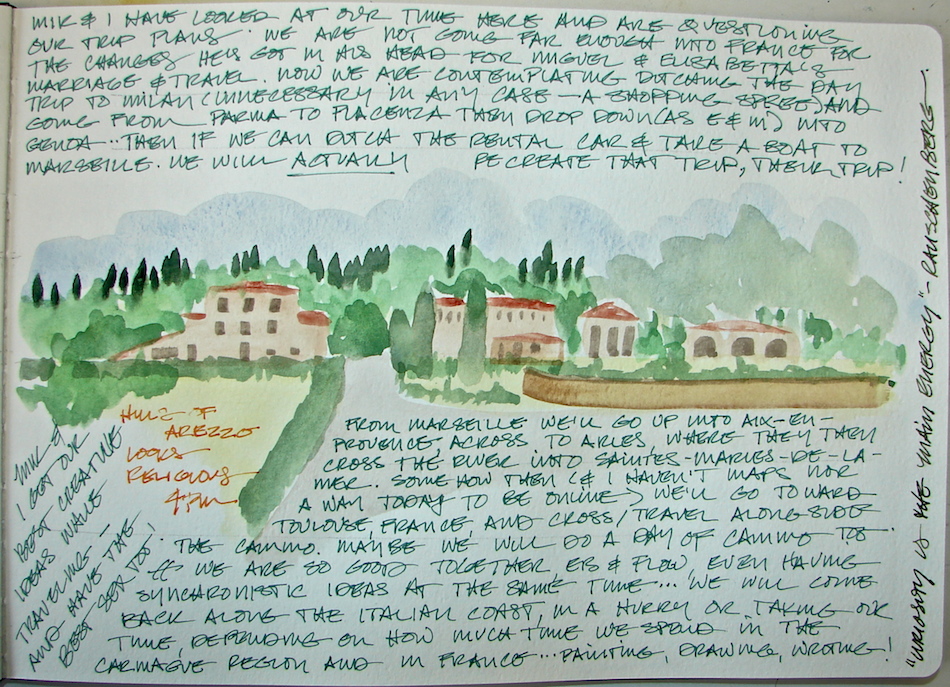 MIK & I HAVE LOOKED AT OUR TIME HERE AND ARE QUESTIONING
OUR TRIP PLANS. WE ARE NOT GOING FAR ENOUGH INTO FRANCE FOR
THE CHANGES HE'S GOT IN HIS HEAD FOR MIGUEL & ELISABETTA'S
MARRIAGE & TRAVEL. NOW WE ARE CONTEMPLATING DITCHING THE DAY
TRIP TO MILAN (UNNECESSARY IN ANY CASE — A SHOPPING SPREE) AND
GOING FROM PARMA TO PIACENZA THEN DROP DOWN (AS E & M) INTO
GENOA... THEN IF WE CAN DITCH THE RENTAL CAR & TAKE A BOAT TO
MARSEILLE. WE WILL ACTUALLY RECREATE THAT TRIP, THEIR TRIP!
HILLS OF
AREZZO
LOOKS
RELIGIOUS
4 PM
FROM MARSEILLE WE'LL GO UP INTO AIX-EN-
PROVENCE, ACROSS TO ARLES WHERE THEY THEN
CROSS THE RIVER INTO SAINTES-MARIES-DE-LA-
MER. SOMEHOW THEN (& I HAVEN'T MAPS NOR
A WAY TODAY TO BE ONLINE) WE'LL GO TOWARD
TOULOUSE, FRANCE, AND CROSS/TRAVEL ALONGSIDE
THE CAMINO. MAYBE WE WILL DO A DAY OF CAMINO TOO.
WE ARE SO GOOD TOGETHER, EBB & FLOW, EVEN HAVING
SYNCHRONISTIC IDEAS AT THE SAME TIME... WE WILL COME
BACK ALONG THE ITALIAN COAST, IN A HURRY OR TAKING OUR
TIME, DEPENDING ON HOW MUCH TIME WE SPEND IN THE
CAMARGUE REGION AND IN FRANCE... PAINTING, DRAWING, WRITING!
MIK &
I GET OUR
BEST CREATIVE
IDEAS WHILE
TRAVELING —
AND HAVE THE
BEST SEX TOO!
"CURIOSITY IS THE MAIN ENERGY" - RAUSCHENBERG -